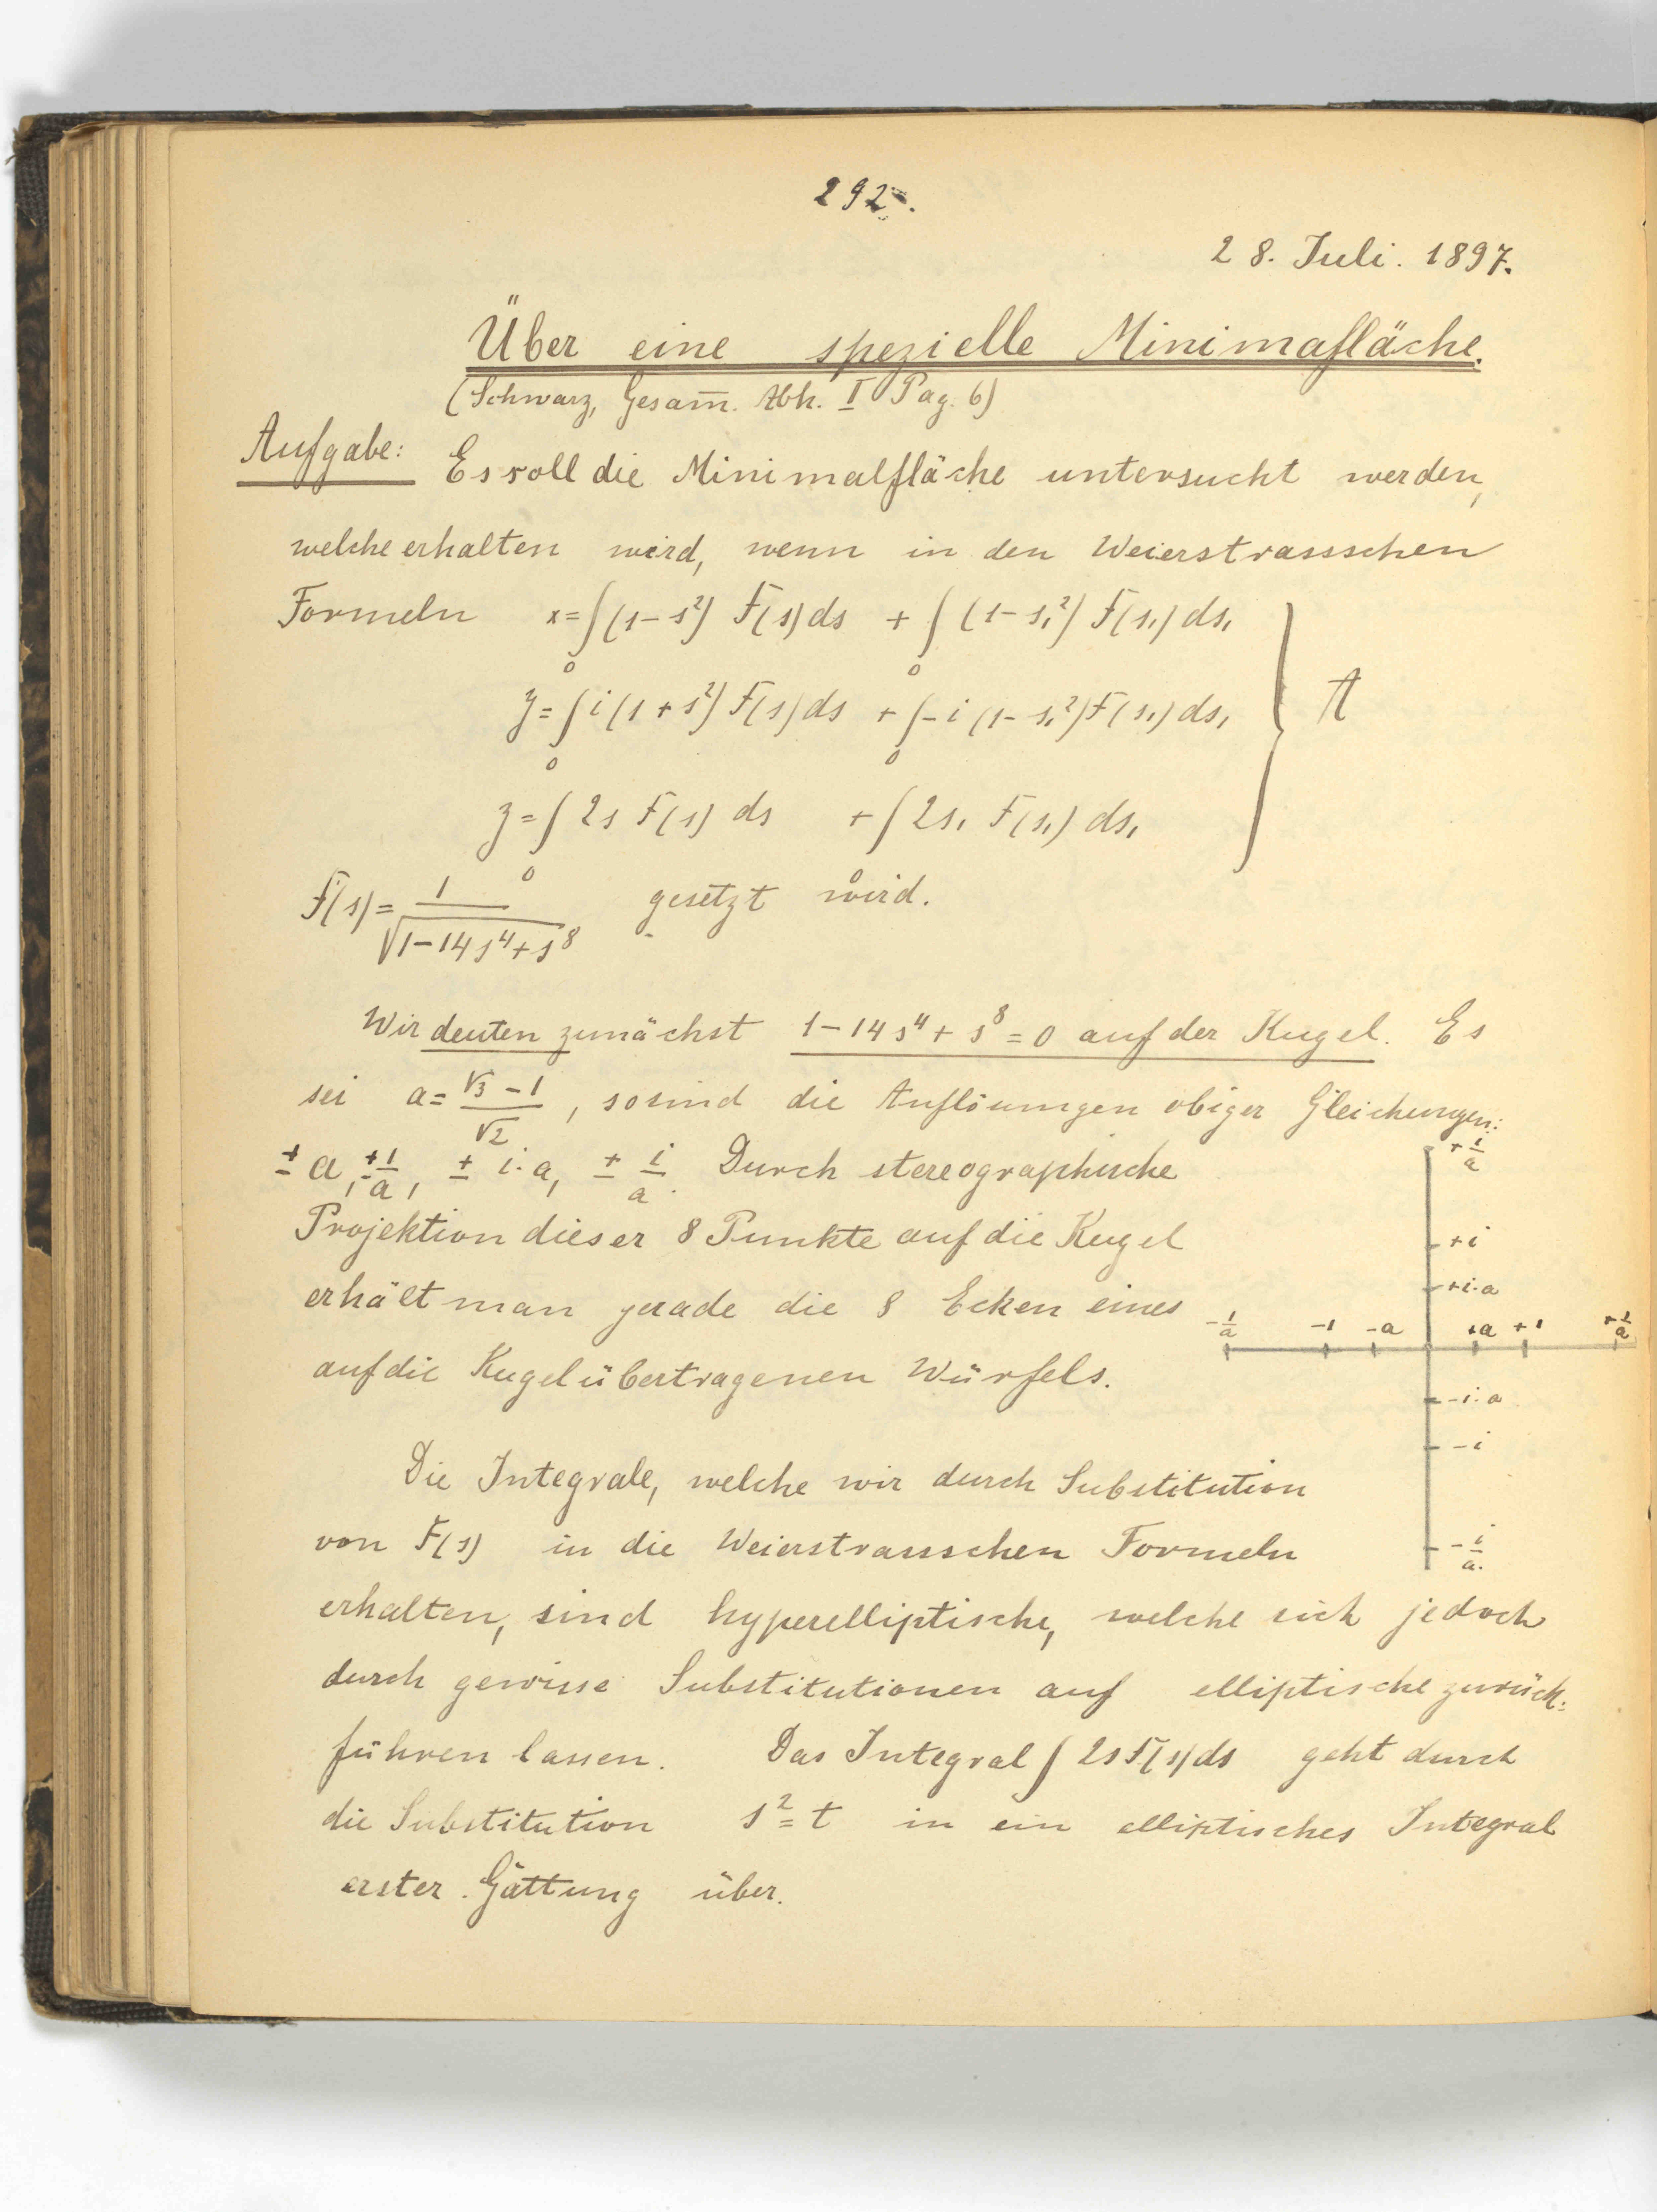 292.
28. Juli. 1897.
Über eine spezielle Minimafläche.
(Schwarz, Gesam̅. Abh. I Pag. 6)
Aufgabe: Es soll die Minimalfläche untersucht werden,
welche erhalten wird, wenn in den Weierstrassschen
Formeln x = ∫₀ (1-s²) F(s) ds + ∫₀ (1-s₁²) F(s₁) ds₁
y = ∫₀ i(1+s²) F(s) ds + ∫₀ -i(1-s₁²) F(s₁) ds₁ } A
z = ∫₀ 2s F(s) ds + ∫₀ 2s₁ F(s₁) ds₁
F(s) = 1/√(1-14s⁴+s⁸) gesetzt wird.
Wir deuten zunächst 1-14s⁴+s⁸=0 auf der Kugel. Es
sei a = (√3-1)/√2, so sind die Auflösungen obiger Gleichungen:
± a, ± 1/a, ± i·a, ± i/a. Durch stereographische
Projektion dieser 8 Punkte auf die Kugel
erhält man gerade die 8 Ecken eines
auf die Kugel übertragenen Würfels.
+ i/a
+i
+i·a
-1/a -1 -a +a +1 +1/a
-i·a
-i
-i/a.
Die Integrale, welche wir durch Substitution
von F(s) in die Weierstrassschen Formeln
erhalten, sind hyperelliptische, welche sich jedoch
durch gewisse Substitutionen auf elliptische zurück-
führen lassen. Das Integral ∫ 2s F(s) ds geht durch
die Substitution s² = t in ein elliptisches Integral
erster Gattung über.